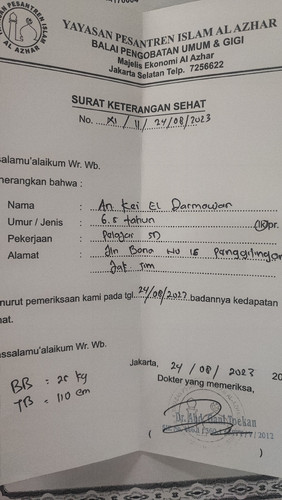 YAYASAN PESANTREN ISLAM AL AZHAR
BALAI PENGOBATAN UMUM & GIGI
Majelis Ekonomi Al Azhar
Jakarta Selatan Telp. 7256622
SURAT KETERANGAN SEHAT
No. XI / 11 / 24/08/2023
salamu'alaikum Wr. Wb.
nerangkan bahwa :
Nama : An Kei El Darmawan
Umur / Jenis : 6.5 tahun lk/pr.
Pekerjaan : Pelajar SD
Alamat : Jln Bona No 15
Jak Tim
nurut pemeriksaan kami pada tgl. 24/08/2023 badannya kedapatan
hat.
assalamu'alaikum Wr. Wb.
Jakarta, 24 / 08 / 2023 20
Dokter yang memeriksa,
BB : 25 kg
TB : 110 cm
( )